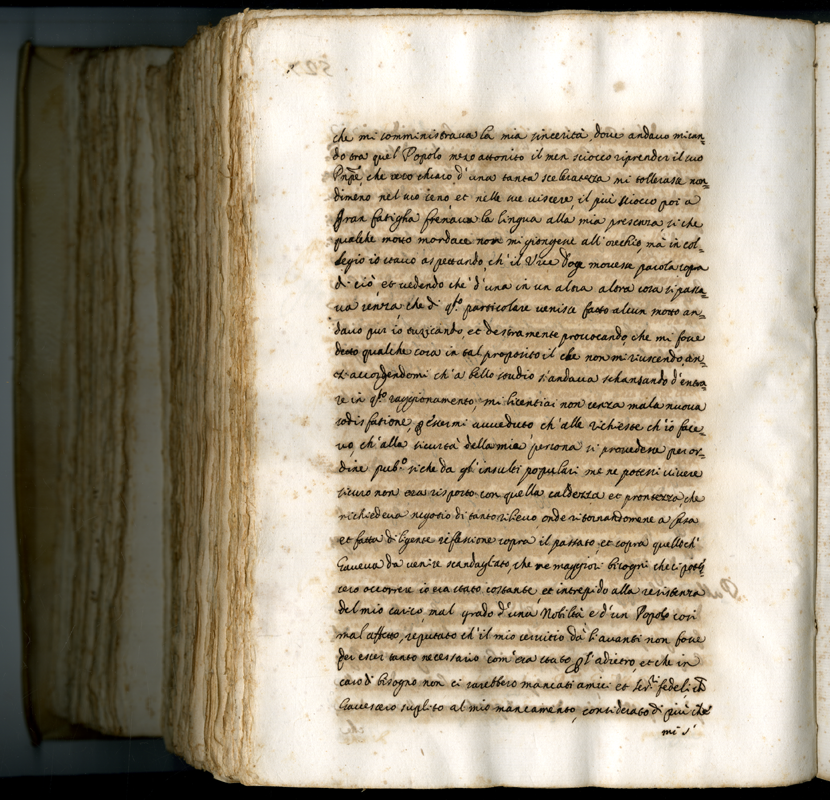 che mi somministraua la mia sincerità, doue andauo miran=
do tra quel Popolo mezo attonito il men sciocco riprender il suo
Pnṕe, che reso chiaro d'una tanta sceleratezza mi tollerasse non=
dimeno nel suo seno et nelle sue viscere, il più sciocco poi a
gran fatigha frenaua la lingua alla mia presenza, si che
qualche moto mordace non mi giongesse all'orechio, mà in col=
legio io stauo aspettando, ch'il Vice Doge mouesse parola sopra
di ciò et vedendo che d'una in un altra altra cosa si passa=
ua senza, che di qsto particolare venisse fatto alcun motto an=
dauo pur io tuzzicando, et destramente prouocando, che mi fosse
detto qualche cosa in tal proposito il che non mi riuscendo, an=
zi accorgendomi ch'a bello studio s'andaua schansando d'entra=
re in qsto raggionamento, mi licentiai non senza mala nuoua
sodisfatione, p essermi aueduto ch'alle richieste ch'io face=
uo, ch'alla sicurtà della mia persona si prouedesse per or=
dine pubco si che da gl'insulti populari me ne potessi viuere
sicuro non era risposto con quella caldezza et prontezza che
richiedeua negotio di tanto rilieuo, onde ritornandomene a casa
et fatta diligente riflessione sopra il passato, et sopra quello ch'
haueua da venire scandagliato che ne maggiori bisogni che potes
sero occorrere io era stato costante, et intrepido alla resistenza
del mio carico, mal grado d'una Nobiltà e d'un Popolo così
mal affetto, reputato ch'il mio seruitio da l'auanti non fosse
per esser tanto necessario com'era stato pl'adietro, et che in
caso di bisogno non ci sarebbero mancati amici et seri fedeli ch
hauessero suplito al mio mancamento, considerato di più che
mi s'